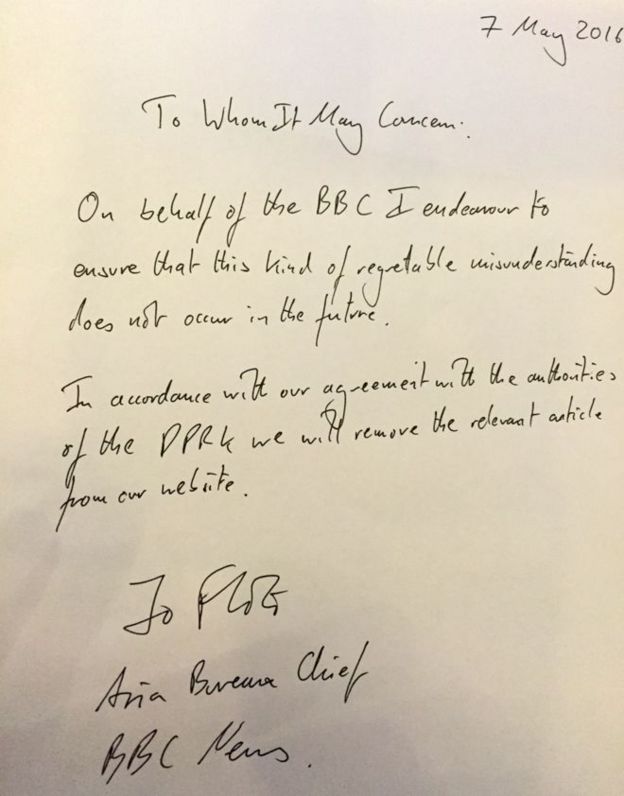 7 May 2016
To Whom It May Concern:
On behalf of the BBC I endeavour to
ensure that this kind of regretable misunderstanding
does not occur in the future.
In accordance with our agreement with the authorities
of the DPRK we will remove the relevant article
from our website.
Jo Floto
Asia Bureau Chief
BBC News.